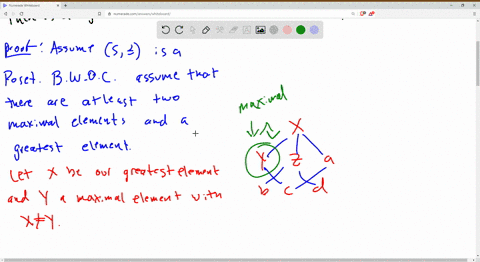 Proof: Assume (S,≤) is a
Poset. B.W.O.C. assume that
there are atleast two
maximal elements and a
greatest element.
Let X be our greatest element
and Y a maximal element with
X≠Y.
maximal
X
Y Z a
b c d